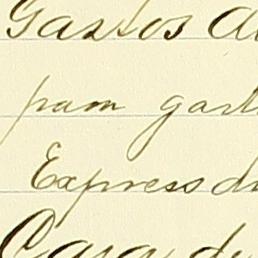 Gastos
pam gast
Express de
Casa de